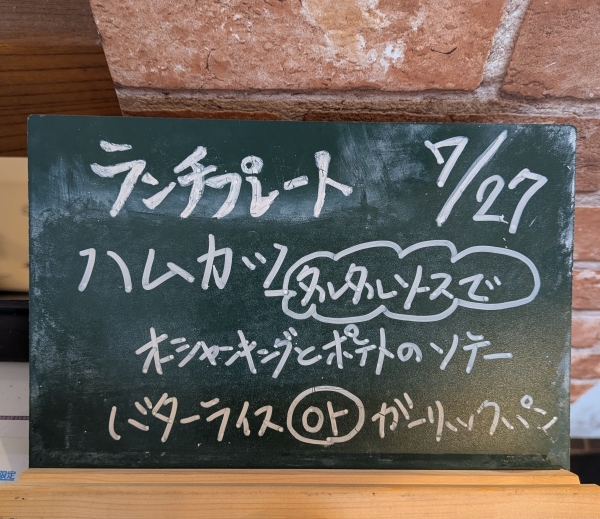 ランチプレート 7/27
ハムカツ タルタルソースで
オーシャンキングとポテトのソテー
バターライス or ガーリックパン
限定